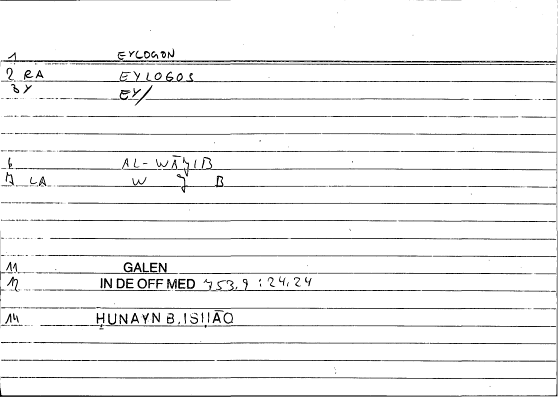 1 EYLOGON
2 RA EYLOGOS
3 Y EY/
6 AL-WĀJIB
7 LA W J B
11 GALEN
12 IN DE OFF MED 753,9 : 24,24
14 ḤUNAYN B. ISḤĀQ